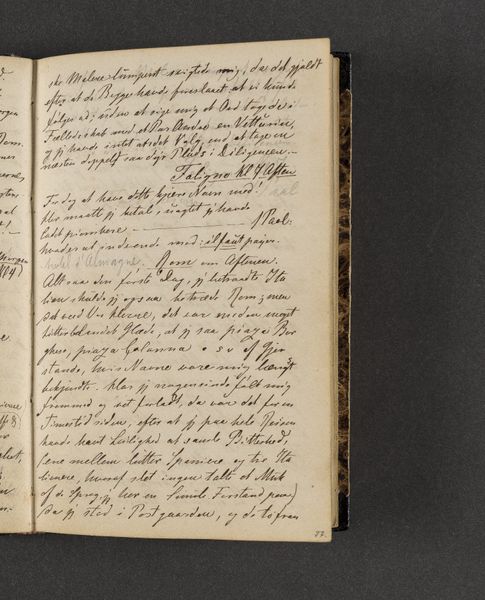 de Malere lumpent svigtede mig, da det gjaldt
efter at de Begge havde foreslaaet at vi kunde
følges ad; uden at sige mig et Ord tog de i
Fælledsskab med et Par Andre en Vetturin,
og jeg havde intet andet Valg, end at tage en
næsten dobbelt saa dyr Plads i Diligencen. —
Foligno Kl 7 Aften
For dog at have dette kjære Navn med!
her maatte jeg betale, uagtet jeg havde
ladet piombere — 1 Paol.
hvad er at indvende mod: il faut payer.
hotel d'Almagne. Rom om Aftenen.
Altsaa den første Dag, jeg betraadte Ita
lien skulde jeg ogsaa betræde Rom; men
det veed Vor Herre, det var med en meget
bitterblandet Glæde, at jeg saa piazza Bor
ghese, piazza Colonna o s v af Gjen
stande, hvis Navne vare mig længst
bekjendte. Har jeg nogensinde følt mig
fremmed og ret forladt, da var det for en
Timestid siden, efter at jeg paa hele Reisen
havde havt Leilighed at samle Bitterhed,
(ene mellem lutter Spaniere og tre Ita
lienere, hvoraf slet ingen talte et Muk
af de Sprog, jeg har en Smule Forstand paa)
da jeg stod i Postgaarden, og de to fran